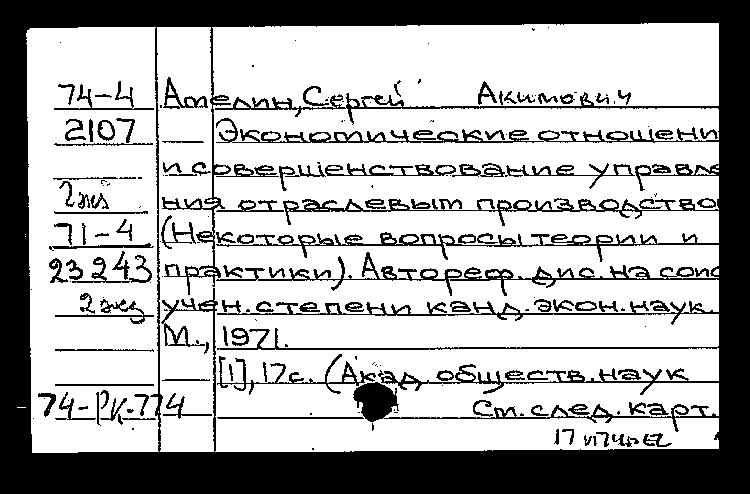 74-4 Амелин, Сергей Акимович
2107 Экономические отношени
и совершенствование управле
2экз ния отраслевым производство
71-4 (Некоторые вопросы теории и
23243 практики). Автореф. дис. на соис
2экз учен. степени канд. экон. наук.
М., 1971.
[1], 17с. (Акад. обществ. наук
74-РК-774 См. след. карт.